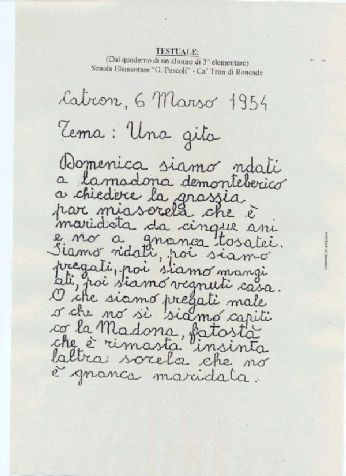 TESTUALE:
(Dal quaderno di un alunno di 3° elementare)
Scuola Elementare "G. Pascoli" - Ca' Tron di Roncade
Catron, 6 Marso 1954
Tema: Una gita
Domenica siamo ndati
a lamadona demonteberico
a chiedere la grassia
par miasorela che è
maridata da cinque ani
e no a gnanca tosatei.
Siamo ndati, poi siamo
pregati, poi siamo mangi
ati, poi siamo vegnuti casa.
O che siamo pregati male
o che no si siamo capiti
co la Madona, fatostà
che è rimasta insinta
laltra sorela che no
è gnanca maridata.